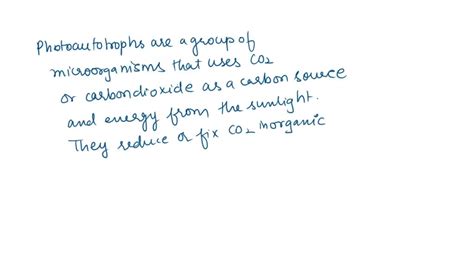 Photoautotrophs are a group of
microorganisms that uses CO2
or carbondioxide as a carbon source
and energy from the sunlight.
They reduce or fix CO2 inorganic